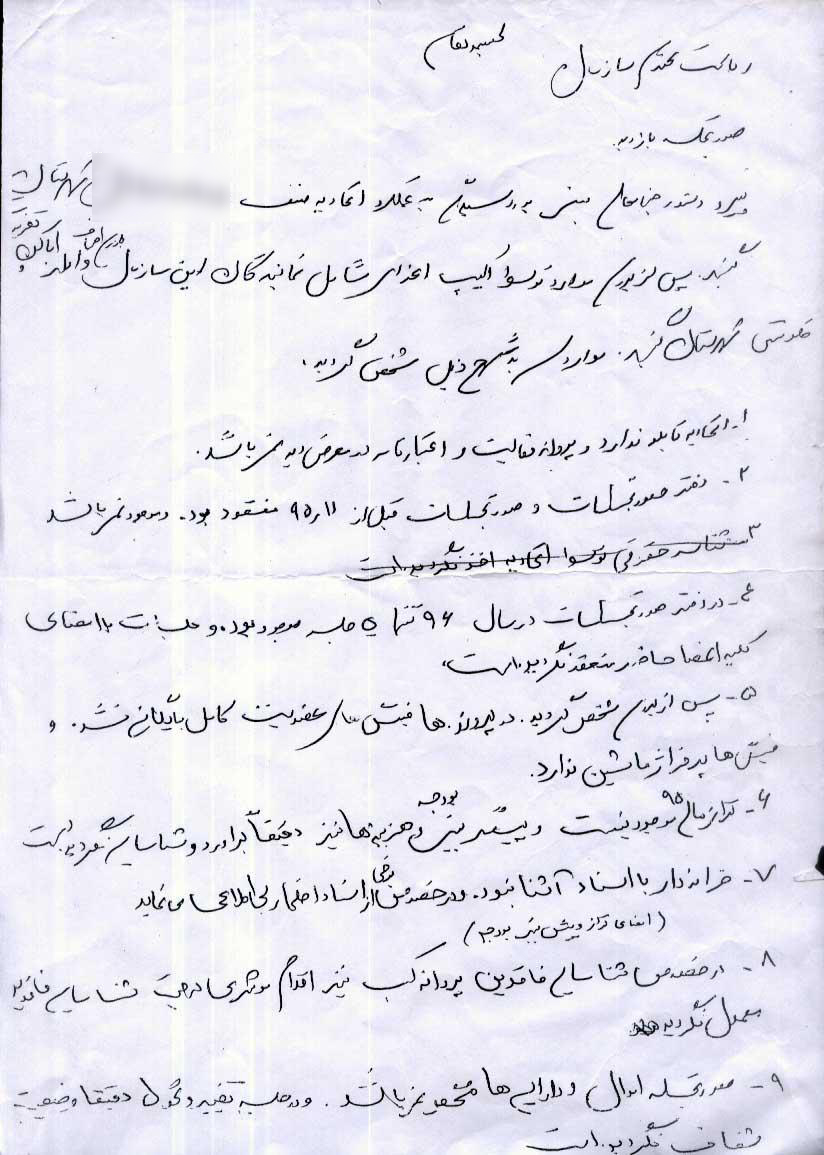 ریاست محترم سازمان
صورتجلسه بازدید
پیرو دستور جنابعالی مبنی بر رسیدگی به عملکرد اتحادیه صنف شهرستان
گنبد. پس از بررسی موارد توسط اکیپ اعزامی شامل نمایندگان این سازمان
شهرستان گنبد. مواردی به شرح ذیل مشخص گردید.
۱- اتحادیه تابلو ندارد و پروانه فعالیت و اعتبارنامه در معرض دید نمی باشد.
۲- دفتر صورتجلسات و صورتجلسات قبل از ۹۵/۱۱ مفقود بود. و موجود نمی باشد
۳- شناسه حقوقی توسط اتحادیه اخذ نگردیده است
۴- در دفتر صورتجلسات در سال ۹۶ تنها ۵ جلسه موجود بوده و جلسات با امضای
کلیه اعضا حاضر منعقد نگردیده است.
۵- پس از بررسی مشخص گردید. در پرونده ها فیش های عضویت کامل بایگانی نشده. و
فیش ها پرفراژ ماشین ندارد.
۶- تراز مالی ۹۵ موجود نیست و پیش بینی بودجه و هزینه ها نیز دقیقاً برآورد و شناسایی نگردیده است
۷- خزانه دار با اسناد آشنا نبود. و در خصوص برخی از اسناد اظهار بی اطلاعی می نماید
(امضای تراز و پیش بینی بودجه)
۸- در خصوص شناسایی فاقدین پروانه کسب نیز اقدام موثری در جهت شناسایی فاقدین
معمول نگردیده
۹- صورتجلسه اموال و دارایی ها مشخص نمی باشد. و در جلسه تغییر و تحول دقیقا وضعیت
شفاف نگردیده است